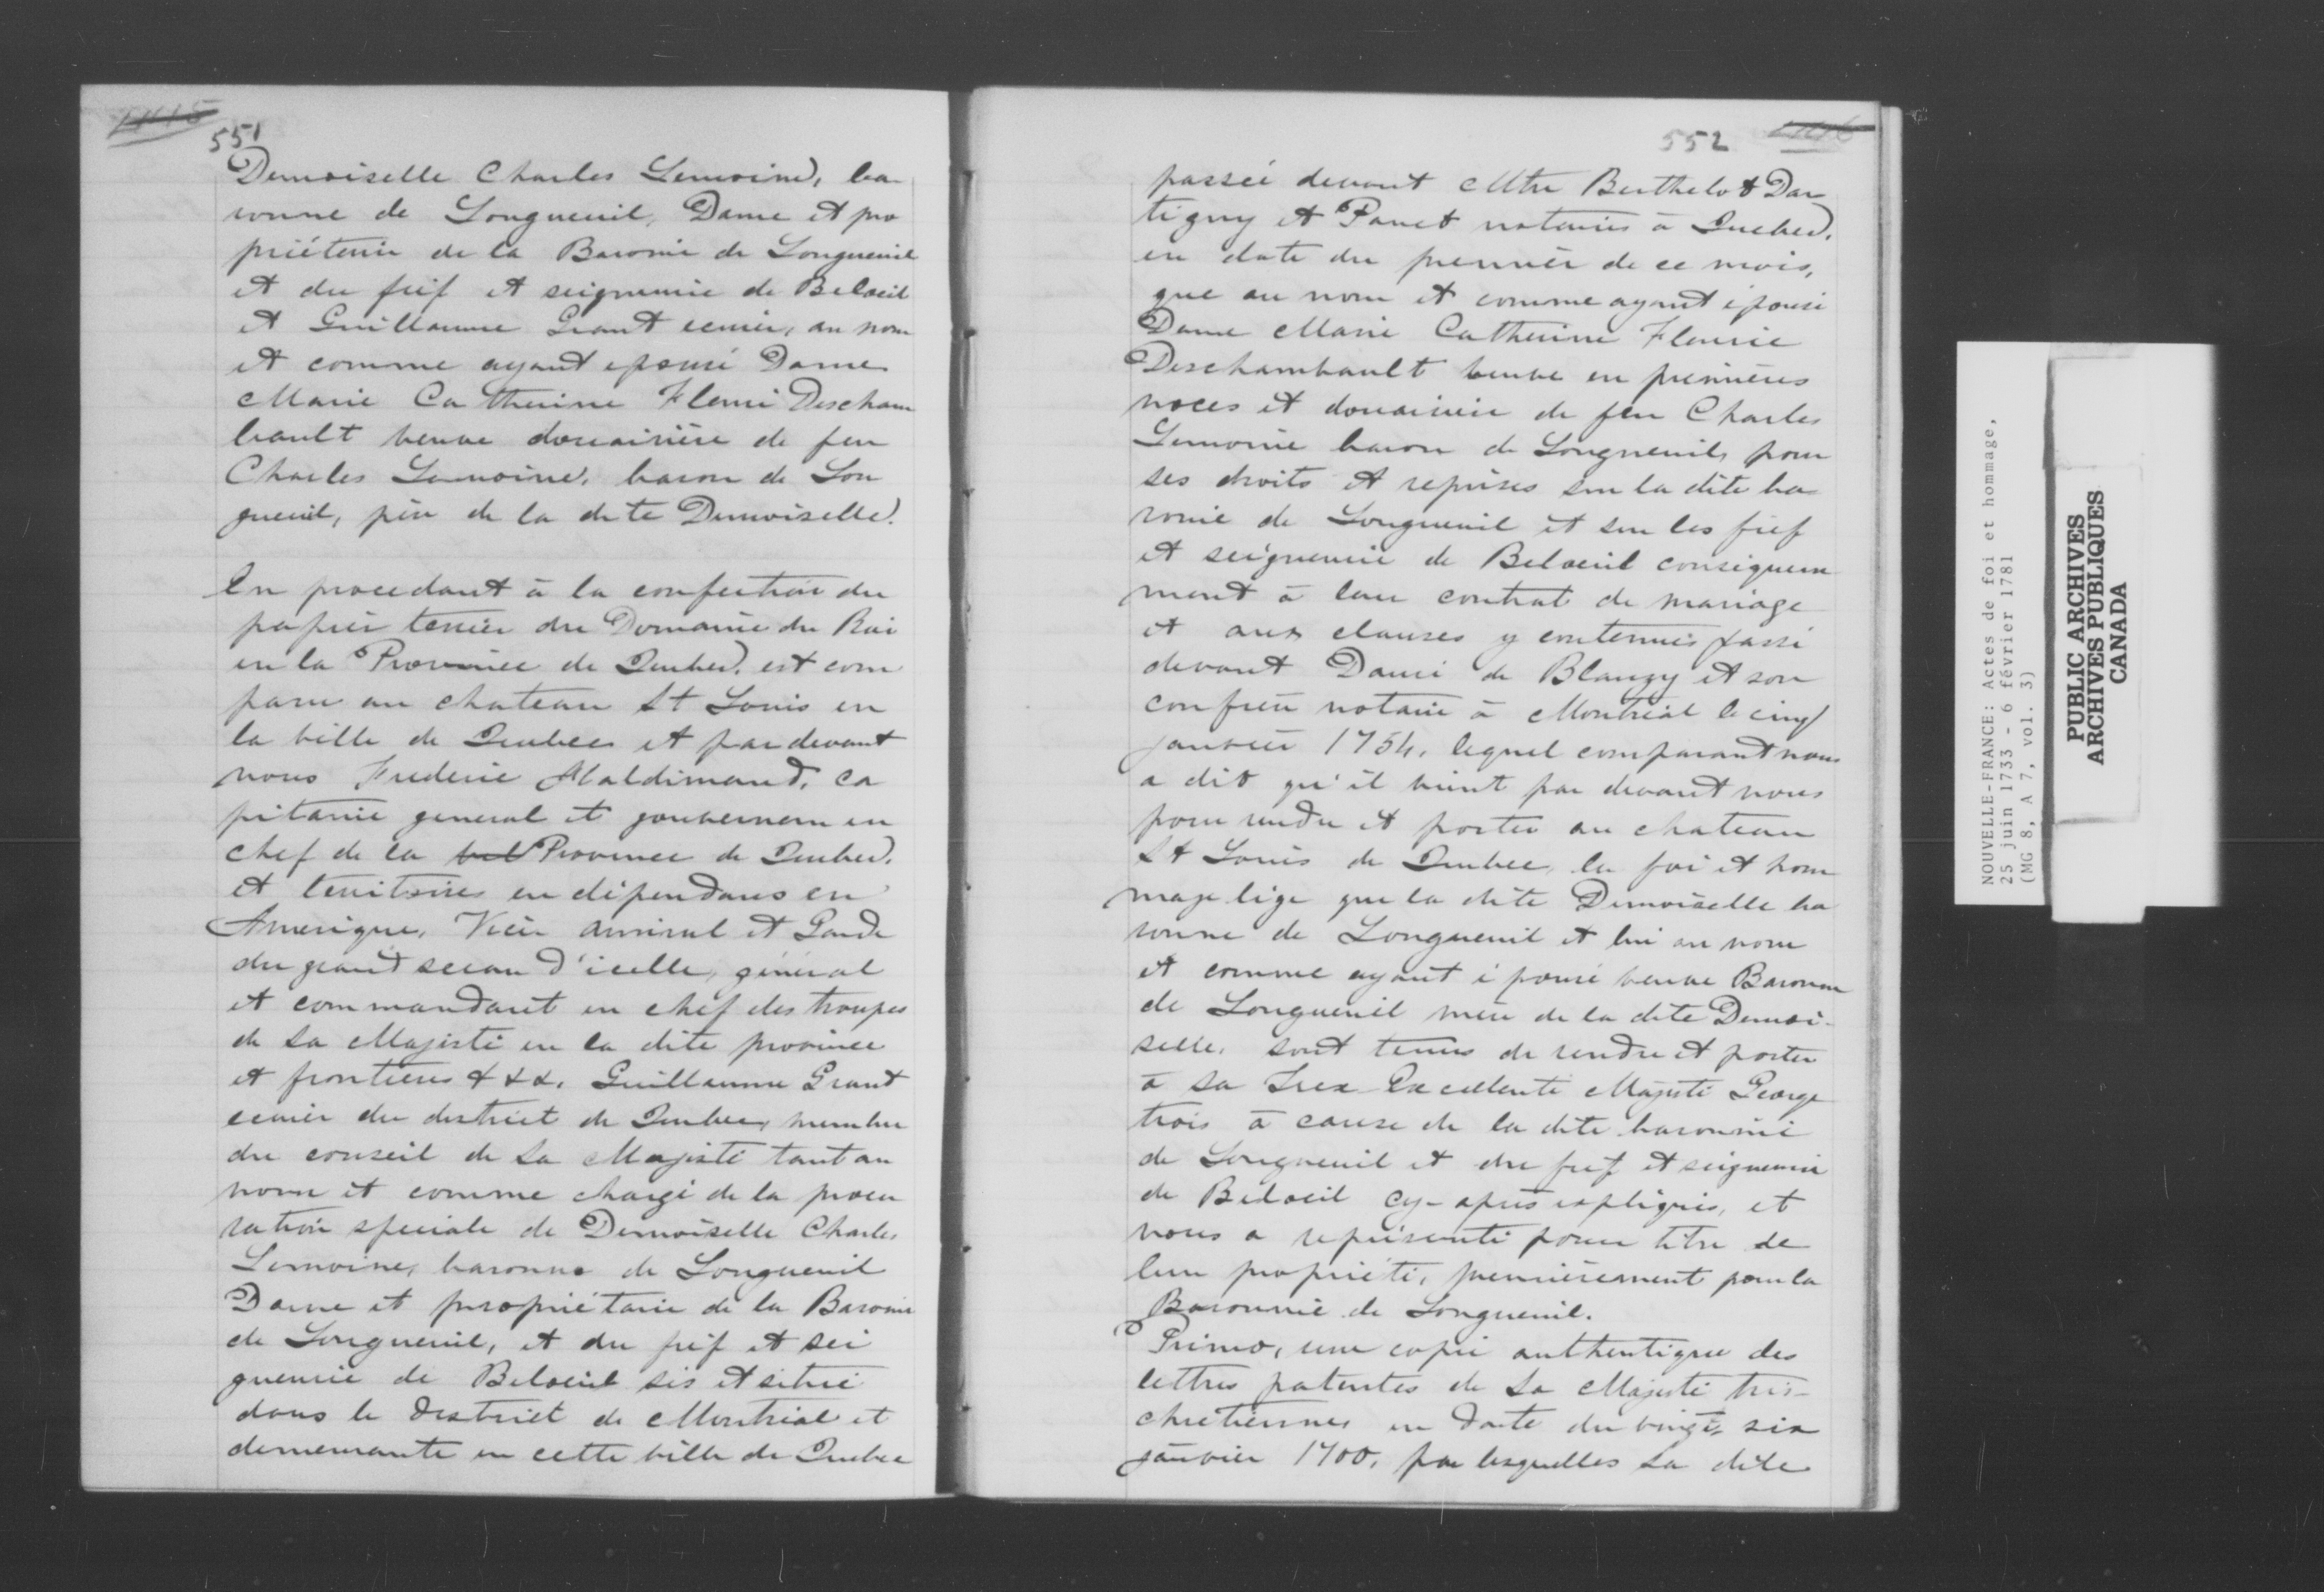 551
Demoiselle Charles Lemoine, ba
ronne de Longueuil, Dame et pro
priétaire de la Baronie de Longueuil
et du fief et seigneurie de Beloeil
et Guillaume Grant ecuier, au nom
et comme ayant epousé Dame
Marie Catherine Fleuri Descham
bault veuve douairière de feu
Charles Lemoine, baron de Lon
gueuil, père de la dite Demoiselle.
En procedant à la confection du
papier terrier du Domaine du Roi
en la Province de Quebec, est com
paru au chateau St Louis en
la ville de Quebec et par devant
nous Frederic Haldimand, ca
pitaine general et gouverneur en
chef de la Province de Quebec,
et territoires en dépendans en
Amerique, Vice amiral et Garde
du grand sceau d'icelle, général
et commandant en chef des troupes
de Sa Majesté en la dite province
et frontieres &&&. Guillaume Grant
ecuier du district de Quebec, membre
du conseil de Sa Majesté tant au
nom et comme chargé de la procu
ration speciale de Demoiselle Charles
Lemoine, baronne de Longueuil
Dame et propriétaire de la Baronie
de Longueuil, et du fief et sei
gneurie de Beloeil sis et situé
dans le District de Montréal et
demeurante en cette ville de Quebec
552
passée devant Mtre Berthelot Dar
tigny et Panet notaires à Quebec,
en date du premier de ce mois,
que au nom et comme ayant épousé
Dame Marie Catherine Fleurie
Deschambault veuve en premières
noces et douairière de feu Charles
Lemoine baron de Longueuil, pour
ses droits et reprises sur la dite ba
ronie de Longueuil et sur les fief
et seigneurie de Beloeil consiquem
ment à leur contrat de mariage
et aux clauses y contenues passé
devant Danré de Blanzy et son
confrere notaire à Montréal le cinq
janvier 1754, lequel comparant nous
a dit qu'il vient par devant nous
pour rendre et porter au chateau
St Louis de Quebec, la foi et hom
mage lige que la dite Demoiselle ba
ronne de Longueuil et lui au nom
et comme ayant épousé veuve Baronne
de Longueuil mère de la dite Demoi-
selle, sont tenus de rendre et porter
à sa Tres Excellente Majesté George
trois à cause de la dite baronnie
de Longueuil et du fief et seigneurie
de Beloeil cy-après expliqués, et
nous a représenté pour titre de
leur propriété, premièrement pour la
Baronnie de Longueuil.
Primo, une copie authentique des
lettres patentes de Sa Majesté très-
chretiennes en date du vingt, six
janvier 1700, par lesquelles Sa dite
NOUVELLE-FRANCE: Actes de foi et hommage,
25 juin 1733 - 6 février 1781
(MG 8, A 7, vol. 3)
PUBLIC ARCHIVES
ARCHIVES PUBLIQUES
CANADA